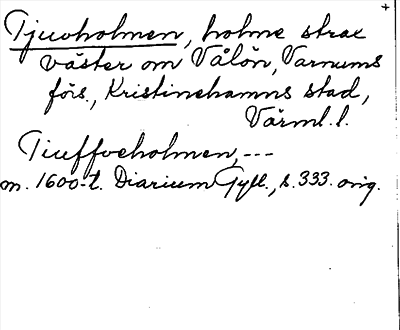 Tjuvholmen, holme strax
väster om Vålön, Varnums
förs., Kristinehamns stad,
Värml. l.
Tiuffveholmen, ---
m. 1600-t. Diarium Gyll., s. 333. orig.